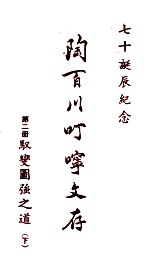 七十誕辰紀念
陶百川叮嚀文存
第二冊 馭變圖強之道(下)